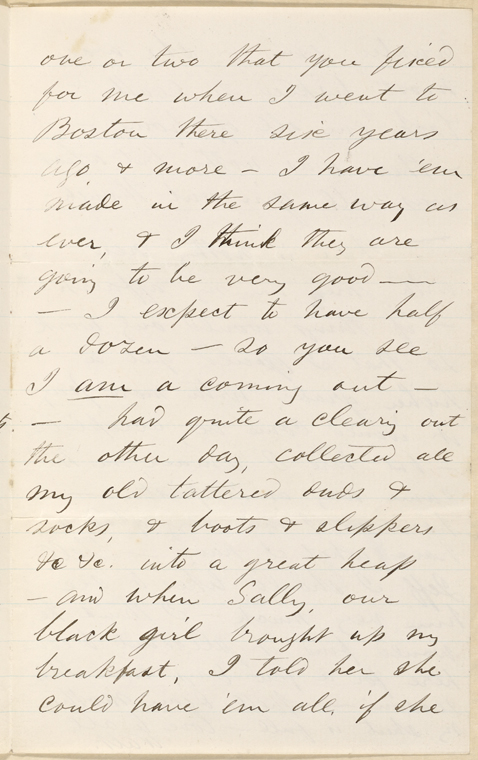 one or two that you fixed
for me when I went to
Boston there six years
ago & more — I have 'em
made in the same way as
ever, & I think they are
going to be very good —
— I expect to have half
a dozen — so you see
I am a coming out —
— had quite a clearing out
the other day, collected all
my old tattered duds &
socks, & boots & slippers
&c &c. into a great heap
— and when Sally, our
black girl brought up my
breakfast, I told her she
could have 'em all, if she